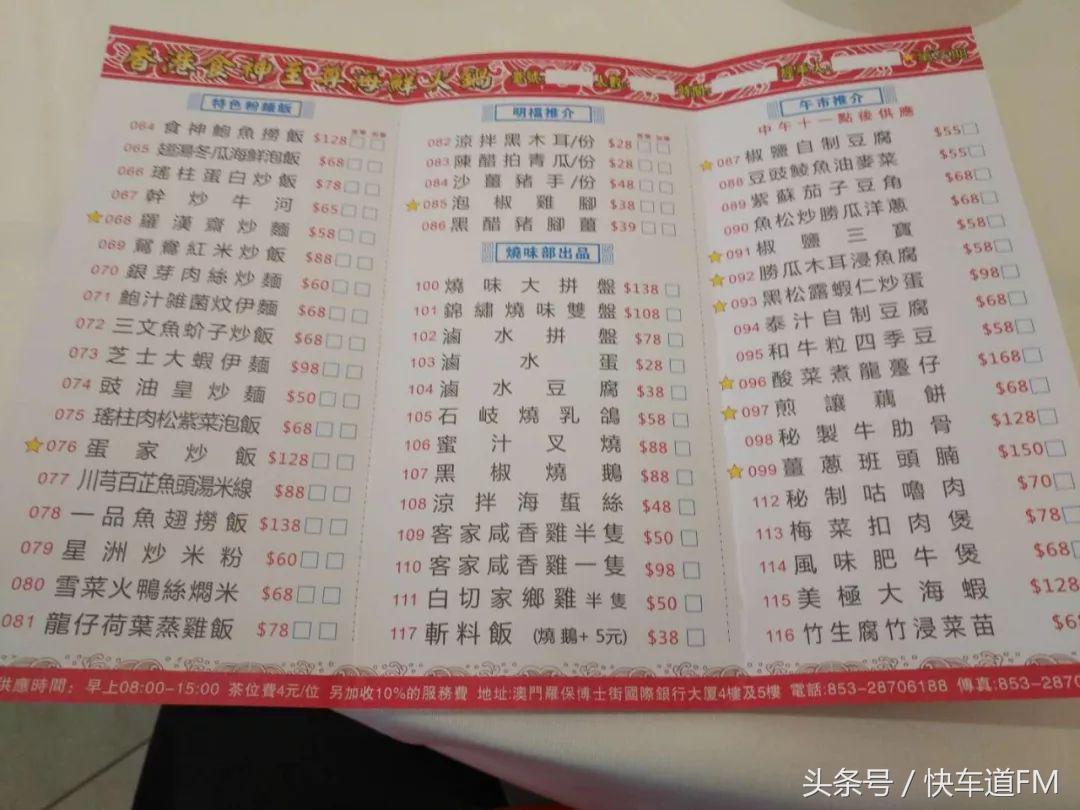 香港食神至尊海鮮火鍋
特色粉麵飯
064 食神鮑魚撈飯 $128
065 翅湯冬瓜海鮮泡飯 $68
066 瑤柱蛋白炒飯 $78
067 幹炒牛河 $65
068 羅漢齋炒麵 $58
069 鴛鴦紅米炒飯 $88
070 銀芽肉絲炒麵 $60
071 鮑汁雜菌炆伊麵 $68
072 三文魚蚧子炒飯 $68
073 芝士大蝦伊麵 $98
074 豉油皇炒麵 $50
075 瑤柱肉松紫菜泡飯 $68
076 蛋家炒飯 $128
077 川芎百芷魚頭湯米線 $88
078 一品魚翅撈飯 $138
079 星洲炒米粉 $60
080 雪菜火鴨絲燜米 $68
081 龍仔荷葉蒸雞飯 $78
明檔推介
082 涼拌黑木耳/份 $28
083 陳醋拍青瓜/份 $28
084 沙薑豬手/份 $48
085 泡椒雞腳 $38
086 黑醋豬腳薑 $39
燒味部出品
100 燒味大拼盤 $138
101 錦繡燒味雙盤 $108
102 滷水拼盤 $78
103 滷水蛋 $28
104 滷水豆腐 $38
105 石岐燒乳鴿 $58
106 蜜汁叉燒 $88
107 黑椒燒鵝 $88
108 涼拌海蜇絲 $48
109 客家咸香雞半隻 $50
110 客家咸香雞一隻 $98
111 白切家鄉雞半隻 $50
117 斬料飯 (燒鵝+5元) $38
午市推介
中午十一點後供應
087 椒鹽自制豆腐 $55
088 豆豉鯪魚油麥菜 $55
089 紫蘇茄子豆角 $68
090 魚松炒勝瓜洋蔥 $68
091 椒鹽三寶 $58
092 勝瓜木耳浸魚腐 $58
093 黑松露蝦仁炒蛋 $98
094 泰汁自制豆腐 $68
095 和牛粒四季豆 $58
096 酸菜煮龍躉仔 $168
097 煎讓藕餅 $68
098 秘製牛肋骨 $128
099 薑蔥班頭腩 $150
112 秘制咕嚕肉 $70
113 梅菜扣肉煲 $78
114 風味肥牛煲 $68
115 美極大海蝦 $128
116 竹生腐竹浸菜苗
供應時間：早上08:00-15:00 茶位費4元/位 另加收10%的服務費 地址:澳門羅保博士街國際銀行大厦4樓及5樓 電話:853-28706188 傳真:853-2870
头条号 / 快车道FM